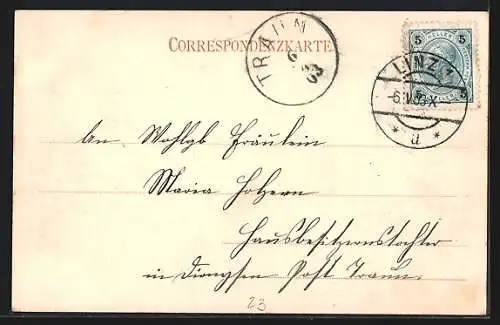 CORRESPONDENZKARTE
TRAUN
6
03
5 HELLER 5
LINZ 1
-6.V.03.X-
* d *
5 5
An Wohlgb Fräulein
Maria Holzern
Hausbesitzerstochter
in Dionysen Post Traun.
23